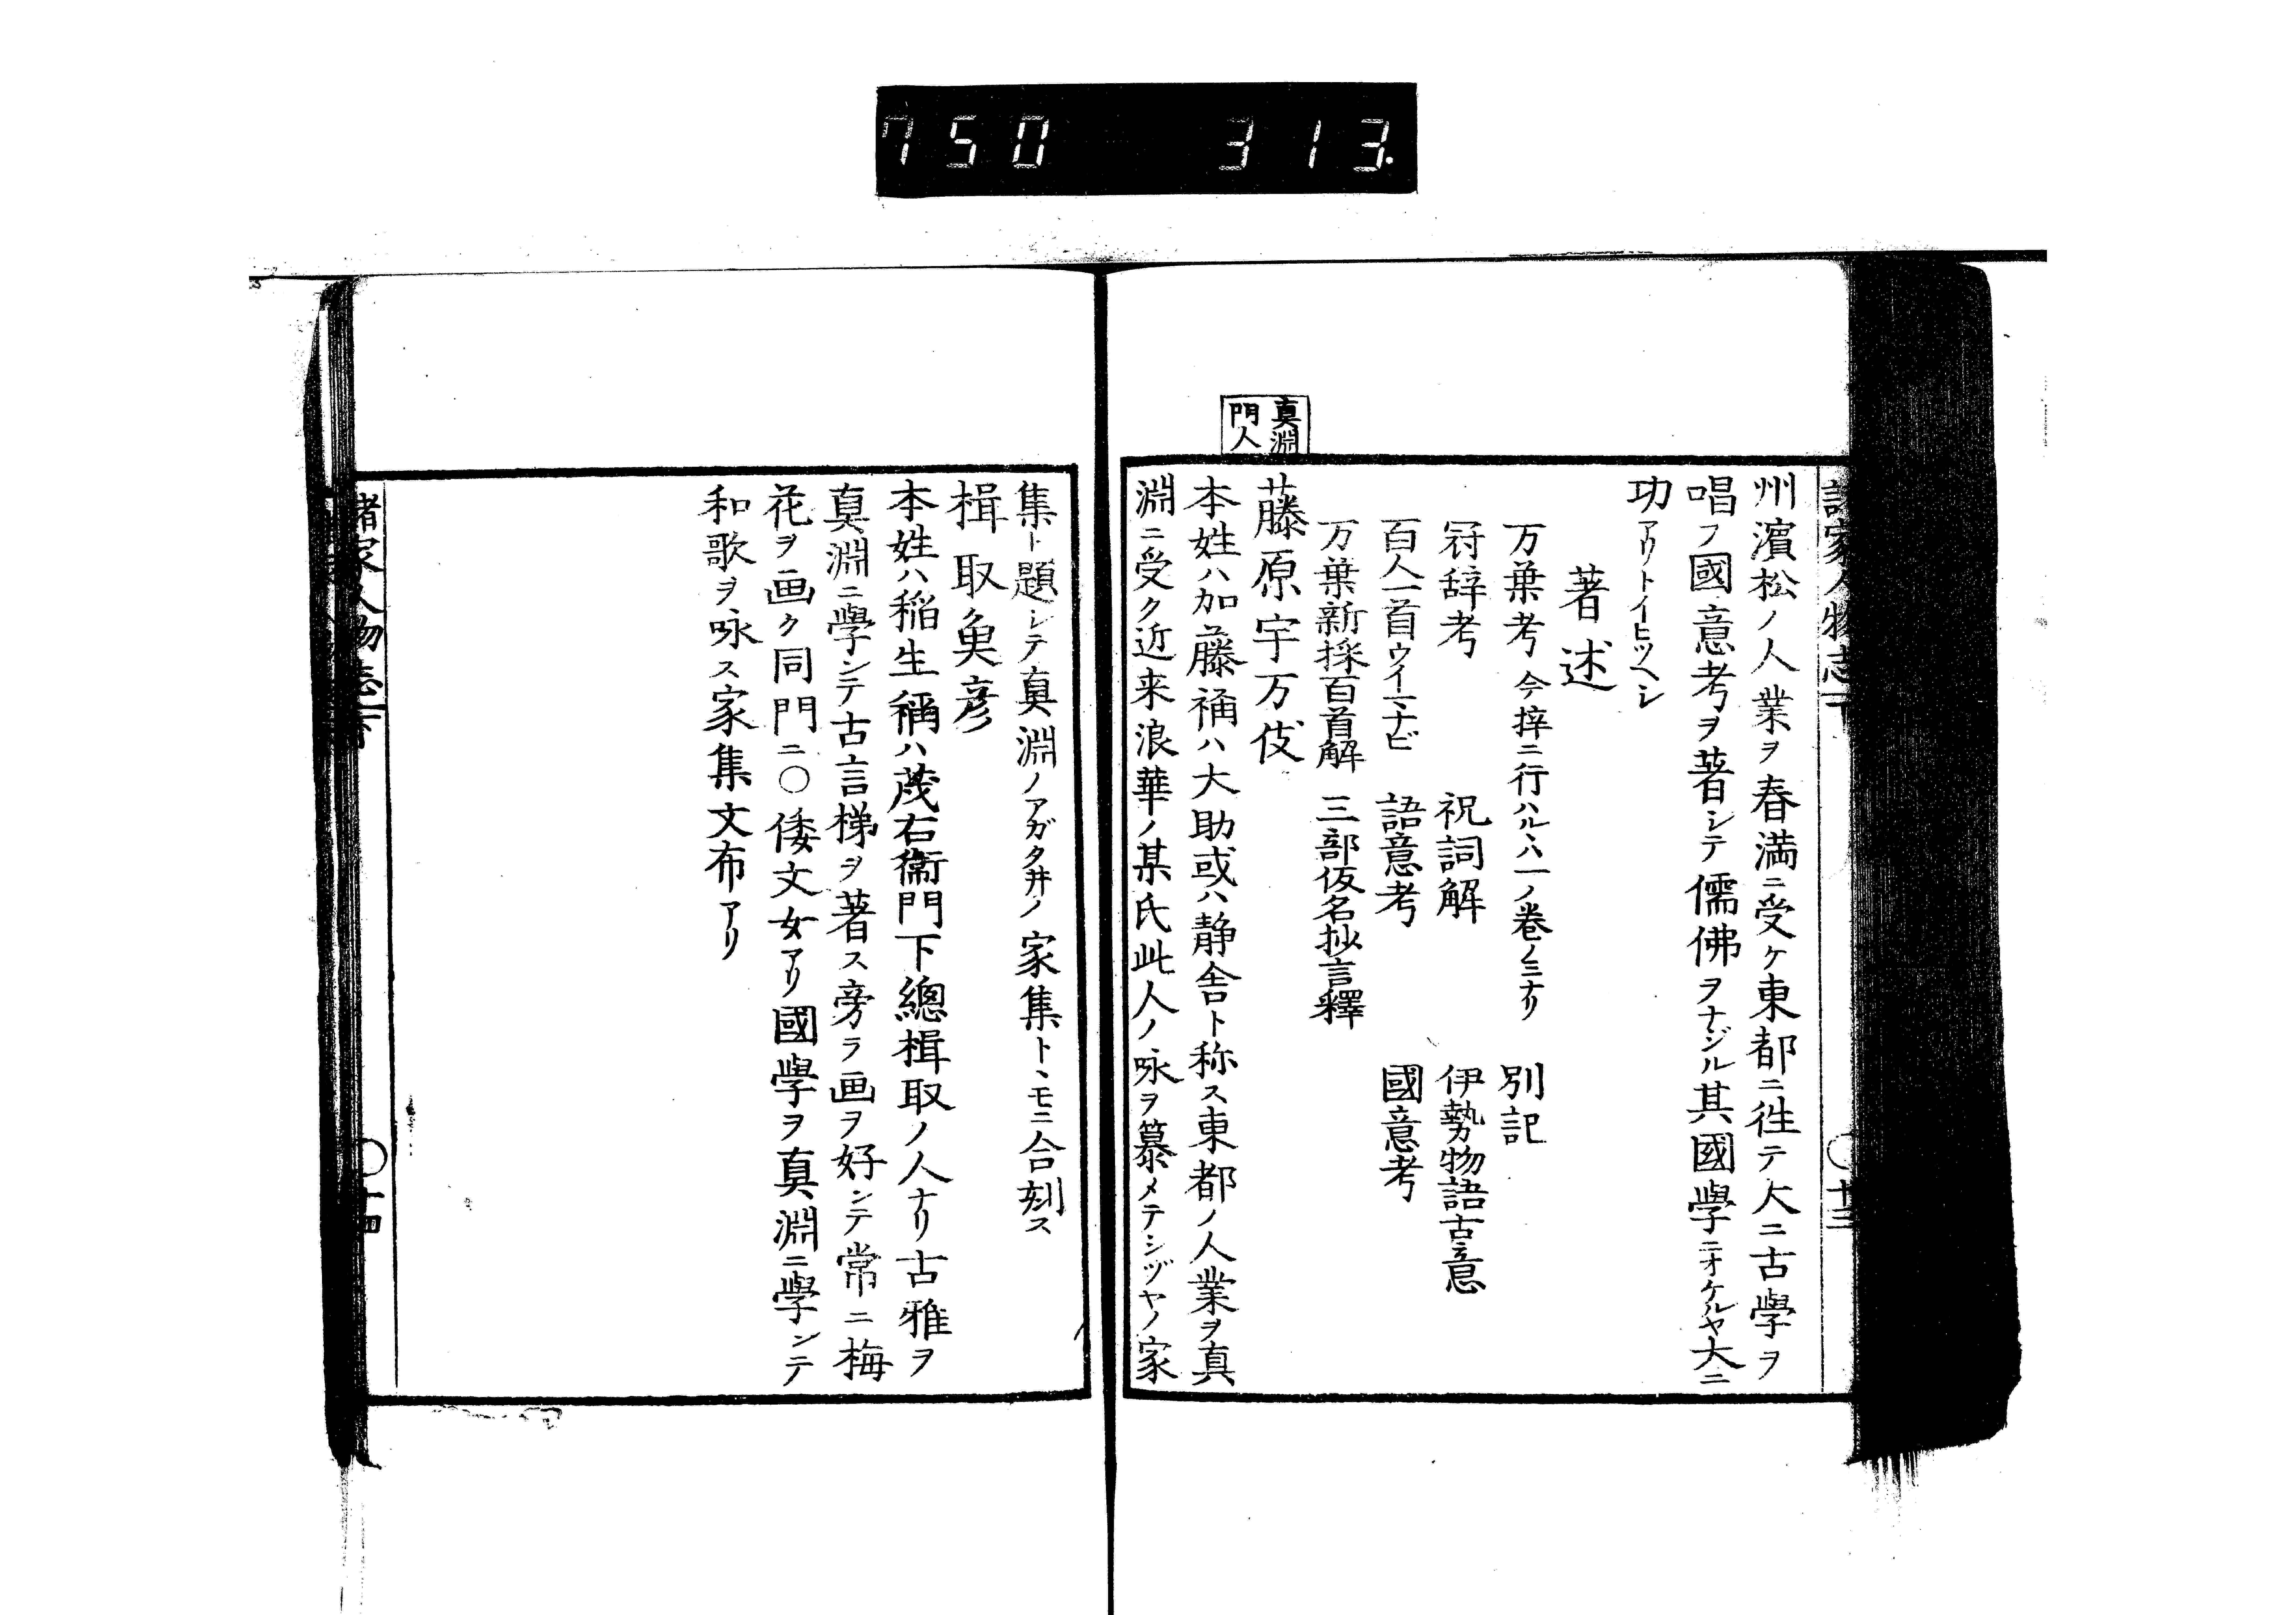 750 313.
諸家人物志下 〇十三
州濱松ノ人業ヲ春満ニ受ケ東都ニ徃テ大ニ古學ヲ
唱フ國意考ヲ著シテ儒佛ヲナジル其國學ニオケルヤ大ニ
功アリトイヒツヘシ
著述
万葉考 今梓ニ行ハルヽハ一ノ巻ノミナリ 別記
冠辞考 祝詞解 伊勢物語古意
百人一首ウイマナビ 語意考 國意考
万葉新採百首解 三部仮名抄言釋
真淵門人
藤原宇万伎
本姓ハ加藤称ハ大助或ハ静舎ト称ス東都ノ人業ヲ真
淵ニ受ク近来浪華ノ某氏此人ノ咏ヲ纂メテシヅヤノ家
集ト題シテ真淵ノアガタ井ノ家集トヽモニ合刻ス
楫取奐彦
本姓ハ稲生稱ハ茂右衞門下總楫取ノ人ナリ古雅ヲ
真淵ニ學ンテ古言梯ヲ著ス旁ラ画ヲ好ンテ常ニ梅
花ヲ画ク同門ニ〇倭文女アリ國學ヲ真淵ニ學ンテ
和歌ヲ咏ス家集文布アリ
諸家人物志下 〇十四